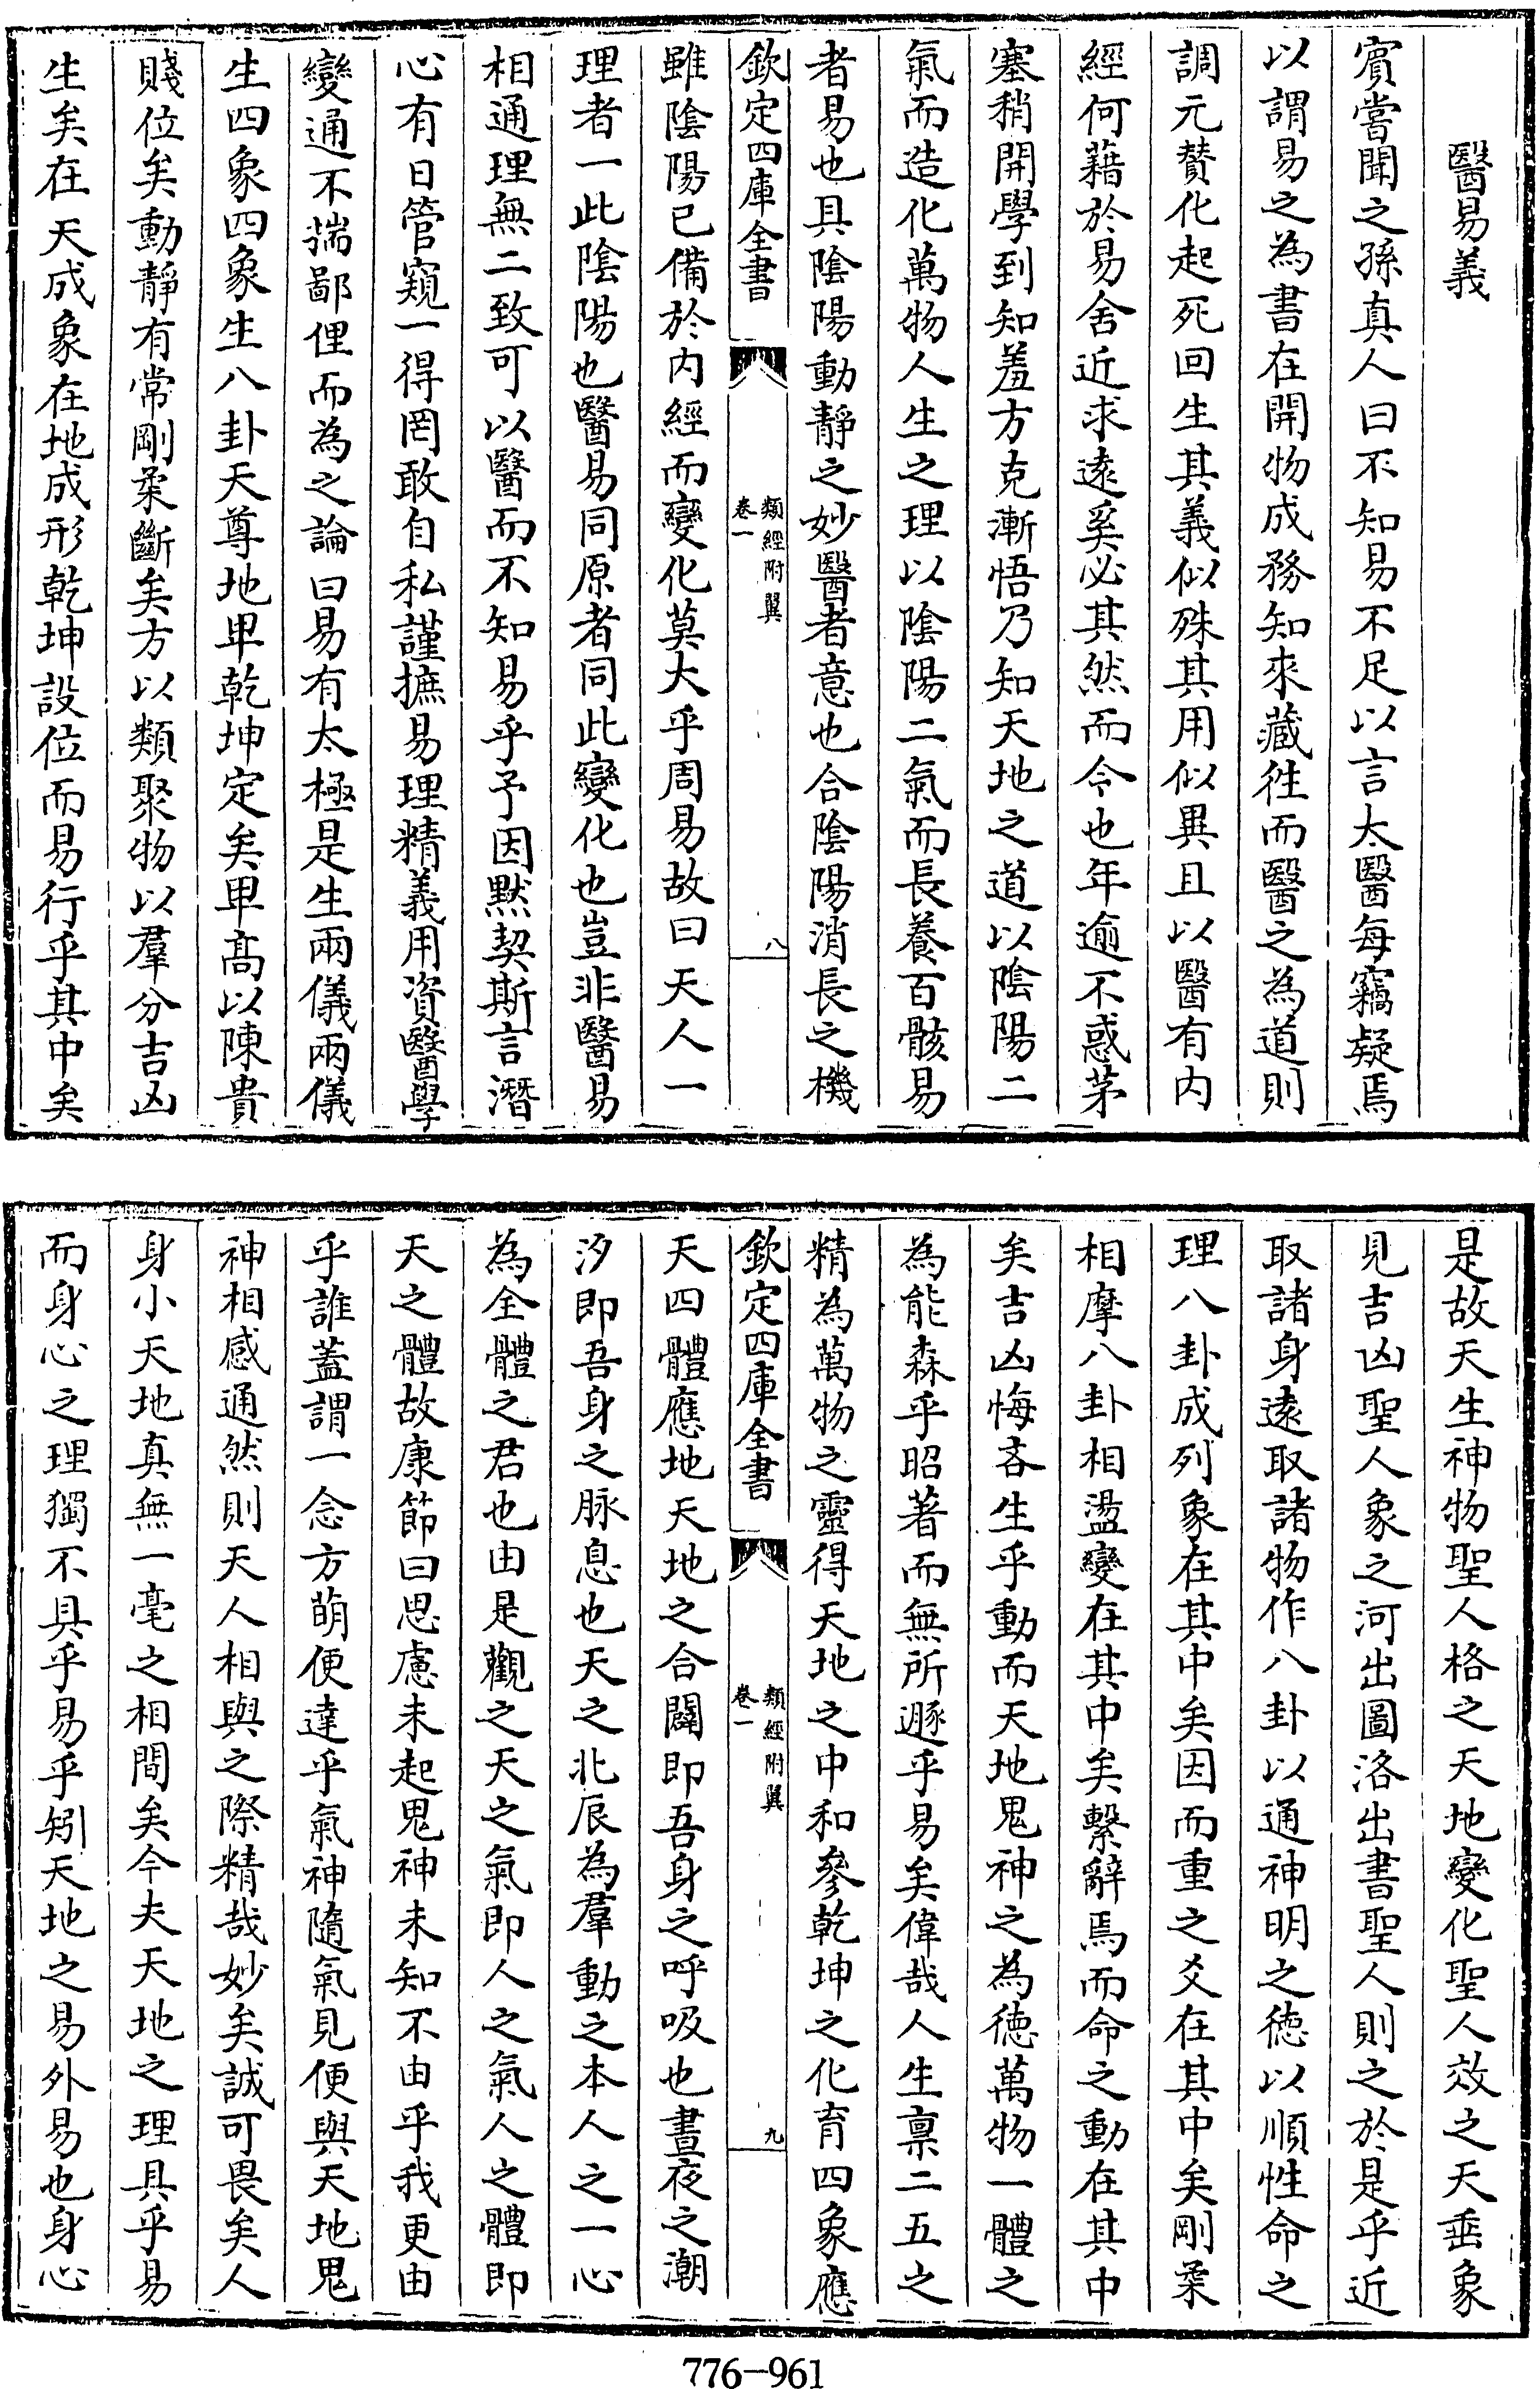 醫易義
賓嘗聞之孫真人曰不知易不足以言太醫每竊疑焉
以謂易之為書在開物成務知來藏徃而醫之為道則
調元賛化起死回生其義似殊其用似異且以醫有内
經何藉於易舍近求逺奚必其然而今也年逾不惑茅
塞稍開學到知羞方克漸悟乃知天地之道以陰陽二
氣而造化萬物人生之理以陰陽二氣而長養百骸易
者易也具陰陽動靜之妙醫者意也合陰陽消長之機
欽定四庫全書
類經附翼
卷一
八
雖陰陽已備於内經而變化莫大乎周易故曰天人一
理者一此陰陽也醫易同原者同此變化也豈非醫易
相通理無二致可以醫而不知易乎予因默契斯言潛
心有日管窺一得罔敢自私謹摭易理精義用資醫學
變通不揣鄙俚而為之論曰易有太極是生兩儀兩儀
生四象四象生八卦天尊地卑乾坤定矣卑髙以陳貴
賤位矣動靜有常剛柔斷矣方以類聚物以羣分吉凶
生矣在天成象在地成形乾坤設位而易行乎其中矣
是故天生神物聖人格之天地變化聖人效之天垂象
見吉凶聖人象之河出圖洛出書聖人則之於是乎近
取諸身逺取諸物作八卦以通神明之徳以順性命之
理八卦成列象在其中矣因而重之爻在其中矣剛柔
相摩八卦相盪變在其中矣繫辭焉而命之動在其中
矣吉凶悔吝生乎動而天地鬼神之為徳萬物一體之
為能森乎昭著而無所遯乎易矣偉哉人生禀二五之
精為萬物之靈得天地之中和參乾坤之化育四象應
欽定四庫全書
類經附翼
卷一
九
天四體應地天地之合闢即吾身之呼吸也晝夜之潮
汐即吾身之脉息也天之北辰為羣動之本人之一心
為全體之君也由是觀之天之氣即人之氣人之體即
天之體故康節曰思慮未起鬼神未知不由乎我更由
乎誰蓋謂一念方萌便達乎氣神隨氣見便與天地鬼
神相感通然則天人相與之際精哉妙矣誠可畏矣人
身小天地真無一毫之相間矣今夫天地之理具乎易
而身心之理獨不具乎易乎矧天地之易外易也身心
776-961